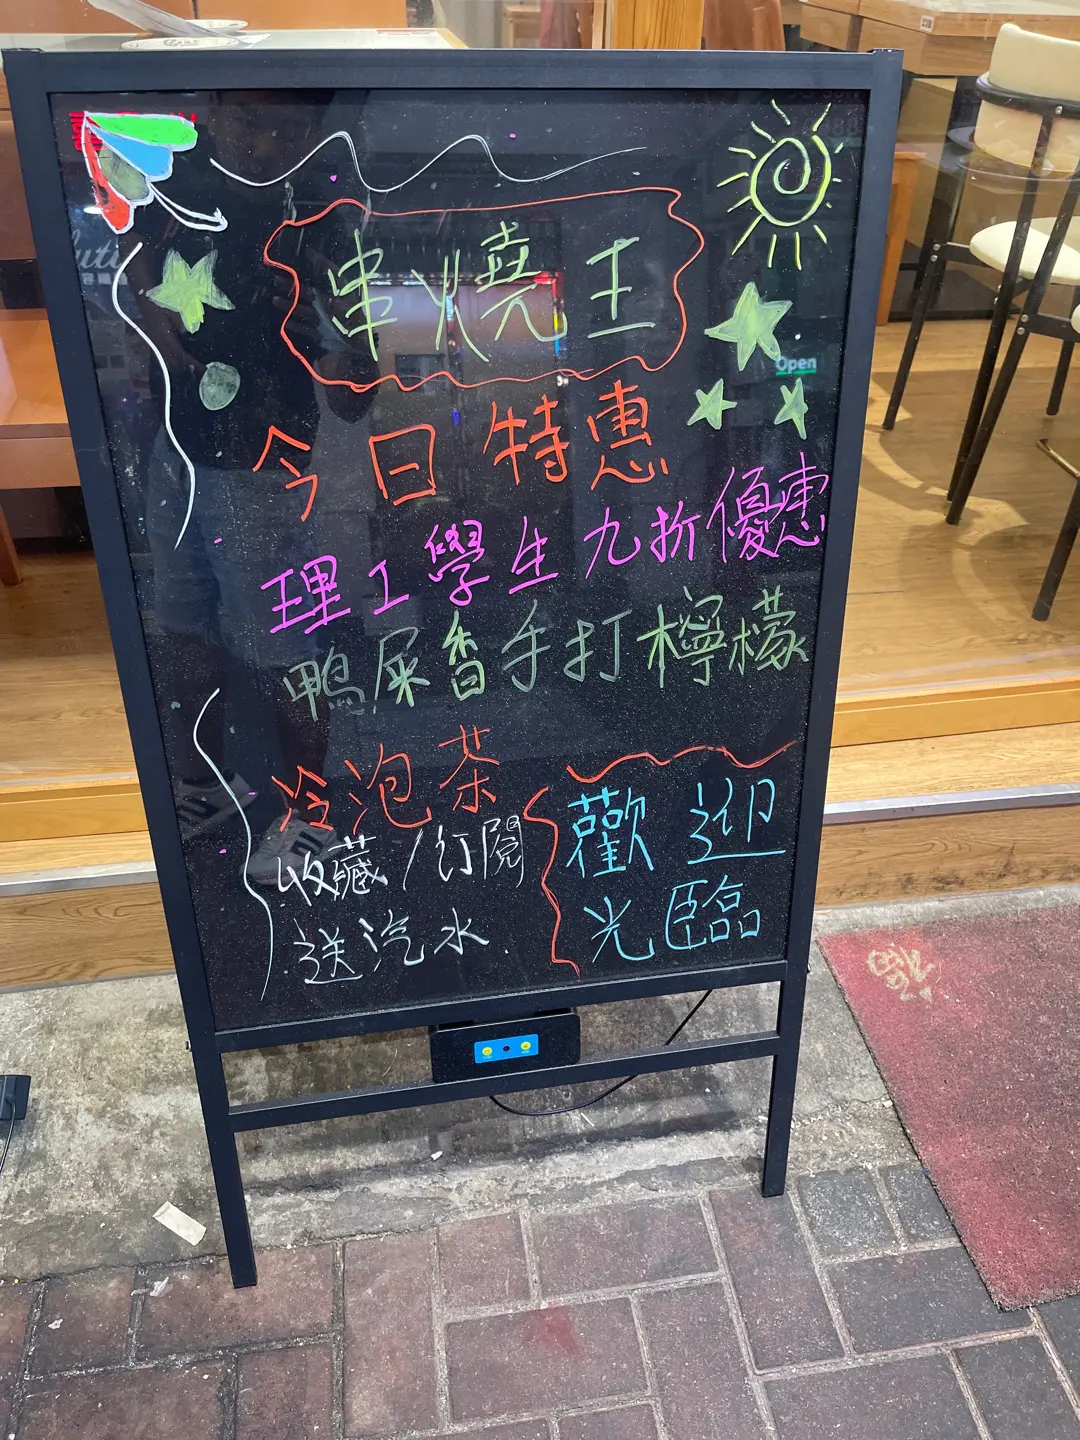 串燒王
今日特惠
理工學生九折優惠
鴨屎香手打檸檬
冷泡茶
收藏/訂閱
送汽水
歡迎
光臨
Open